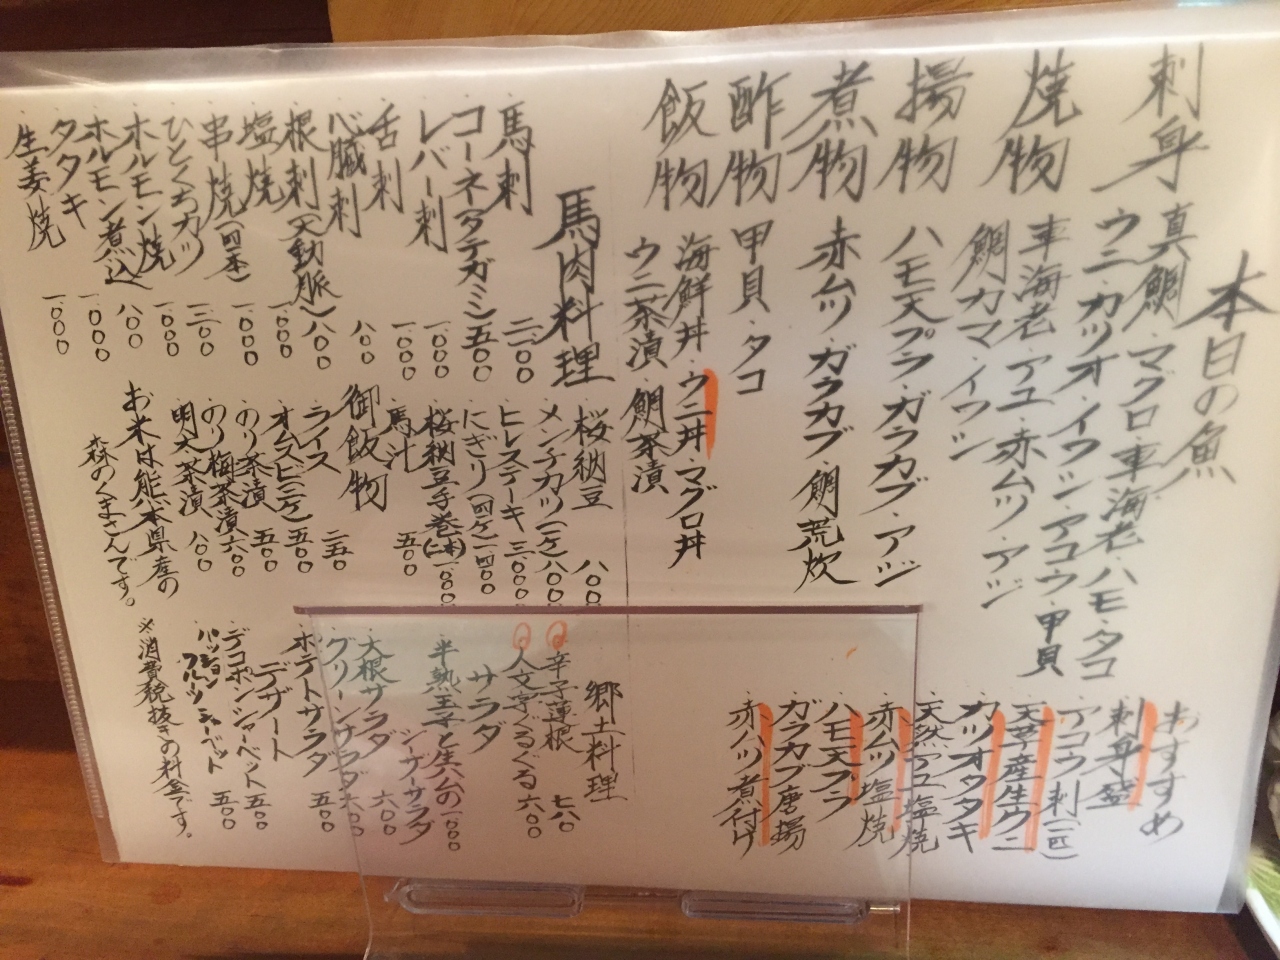 本日の魚
刺身 真鯛・マグロ・車海老・ハモ・タコ
ウニ・カツオ・イワシ・アコウ・甲貝
焼物 車海老・アユ・赤ムツ・アジ
鯛カマ・イワシ
揚物 ハモ天プラ・ガラカブ・アジ
煮物 赤ムツ・ガラカブ・鯛荒炊
酢物 甲貝・タコ
飯物 海鮮丼・ウニ丼・マグロ丼
ウニ茶漬・鯛茶漬
おすすめ
・刺身盛
・アコウ刺(一匹)
・天草産生ウニ
・カツオタタキ
・天然アユ塩焼
・赤ムツ塩焼
・ハモ天プラ
・ガラカブ唐揚
・赤ムツ煮付け
馬肉料理
・馬刺 二二〇〇
・コーネ(タテガミ) 五〇〇
・レバー刺 一〇〇〇
・舌刺 一〇〇〇
・心臓刺 八〇〇
・根刺(大動脈) 八〇〇
・塩焼 一〇〇〇
・串焼(四本) 一〇〇〇
・ひとくちカツ 一三〇〇
・ホルモン焼 一〇〇〇
・ホルモン煮込 八〇〇
・タタキ 一〇〇〇
・生姜焼 一〇〇〇
・桜納豆 八〇〇
・メンチカツ(一ケ) 八〇〇
・ヒレステーキ 三〇〇〇
・にぎり(四ケ) 一四〇〇
・桜納豆手巻(二本) 一〇〇〇
・馬汁 五〇〇
御飯物
・ライス 二五〇
・オムスビ(二ケ) 五〇〇
・のり茶漬 五〇〇
・のり梅茶漬 六〇〇
・明太茶漬 八〇〇
お米は熊本県産の
森のくまさんです。
郷土料理
・辛子蓮根 七八〇
・人文字ぐるぐる 六〇〇
サラダ
・半熟玉子と生ハムの
シーザーサラダ 一〇〇〇
・大根サラダ 六〇〇
・グリーンサラダ 六〇〇
・ポテトサラダ 五〇〇
デザート
・デコポンシャーベット 五〇〇
・パッション
フルーツシャーベット 五〇〇
※消費税抜きの料金です。